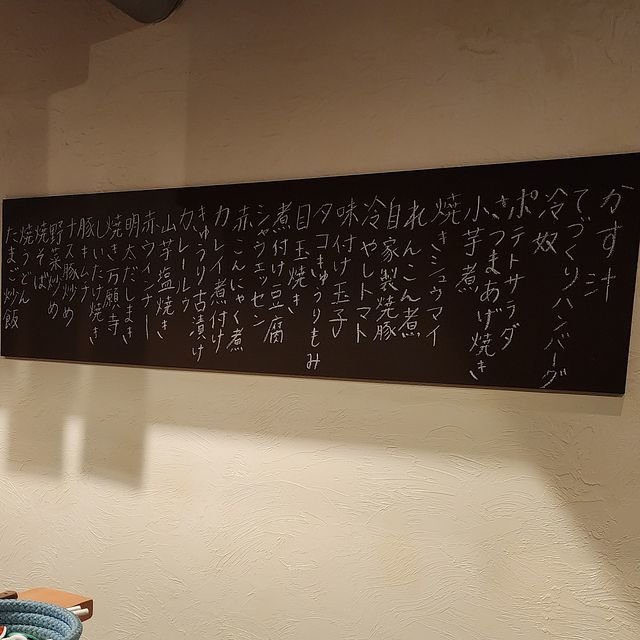 かす汁
てづくりハンバーグ
冷奴
ポテトサラダ
さつまあげ焼き
小芋煮
焼きシュウマイ
れんこん煮
自家製焼豚
冷やしトマト
味付け玉子
タコきゅうりもみ
目玉焼き
煮付け豆腐
シャウエッセン
赤こんにゃく煮
カレイ煮付け
きゅうり古漬け
カレールウ
山芋塩焼き
赤ウインナー
明太だしまき
焼き万願寺
しいたけ焼き
豚キムチ
ナス豚炒め
野菜炒め
焼そば
焼うどん
たまご炒飯